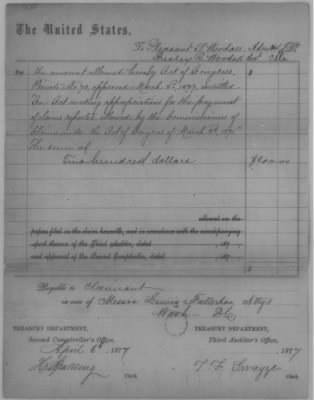 The United States,
To Pleasant T. Woodall
Woodall
For the amount allowed by Act of Congress,
Private No. 72 approved March 3d, 1877, entitled
"An Act making appropriation for the payment
of claims reported allowed by the Commissioners of
Claims under the Act of Congress of March 3d, 1871"
The sum of
Two hundred dollars $200.00
allowed on the
papers filed in the claim herewith, and in accordance with the accompanying
report thereon of the Third Auditor, dated , 187 ,
and approved by the Second Comptroller, dated , 187 .
$
Payable to Claimant
in care of Messrs & Fullerton Attys
Wash D.C.
TREASURY DEPARTMENT, TREASURY DEPARTMENT,
Second Comptroller's Office, Third Auditor's Office,
April 6th, 1877 , 1877
Clerk. T. F. Swayze Clerk.